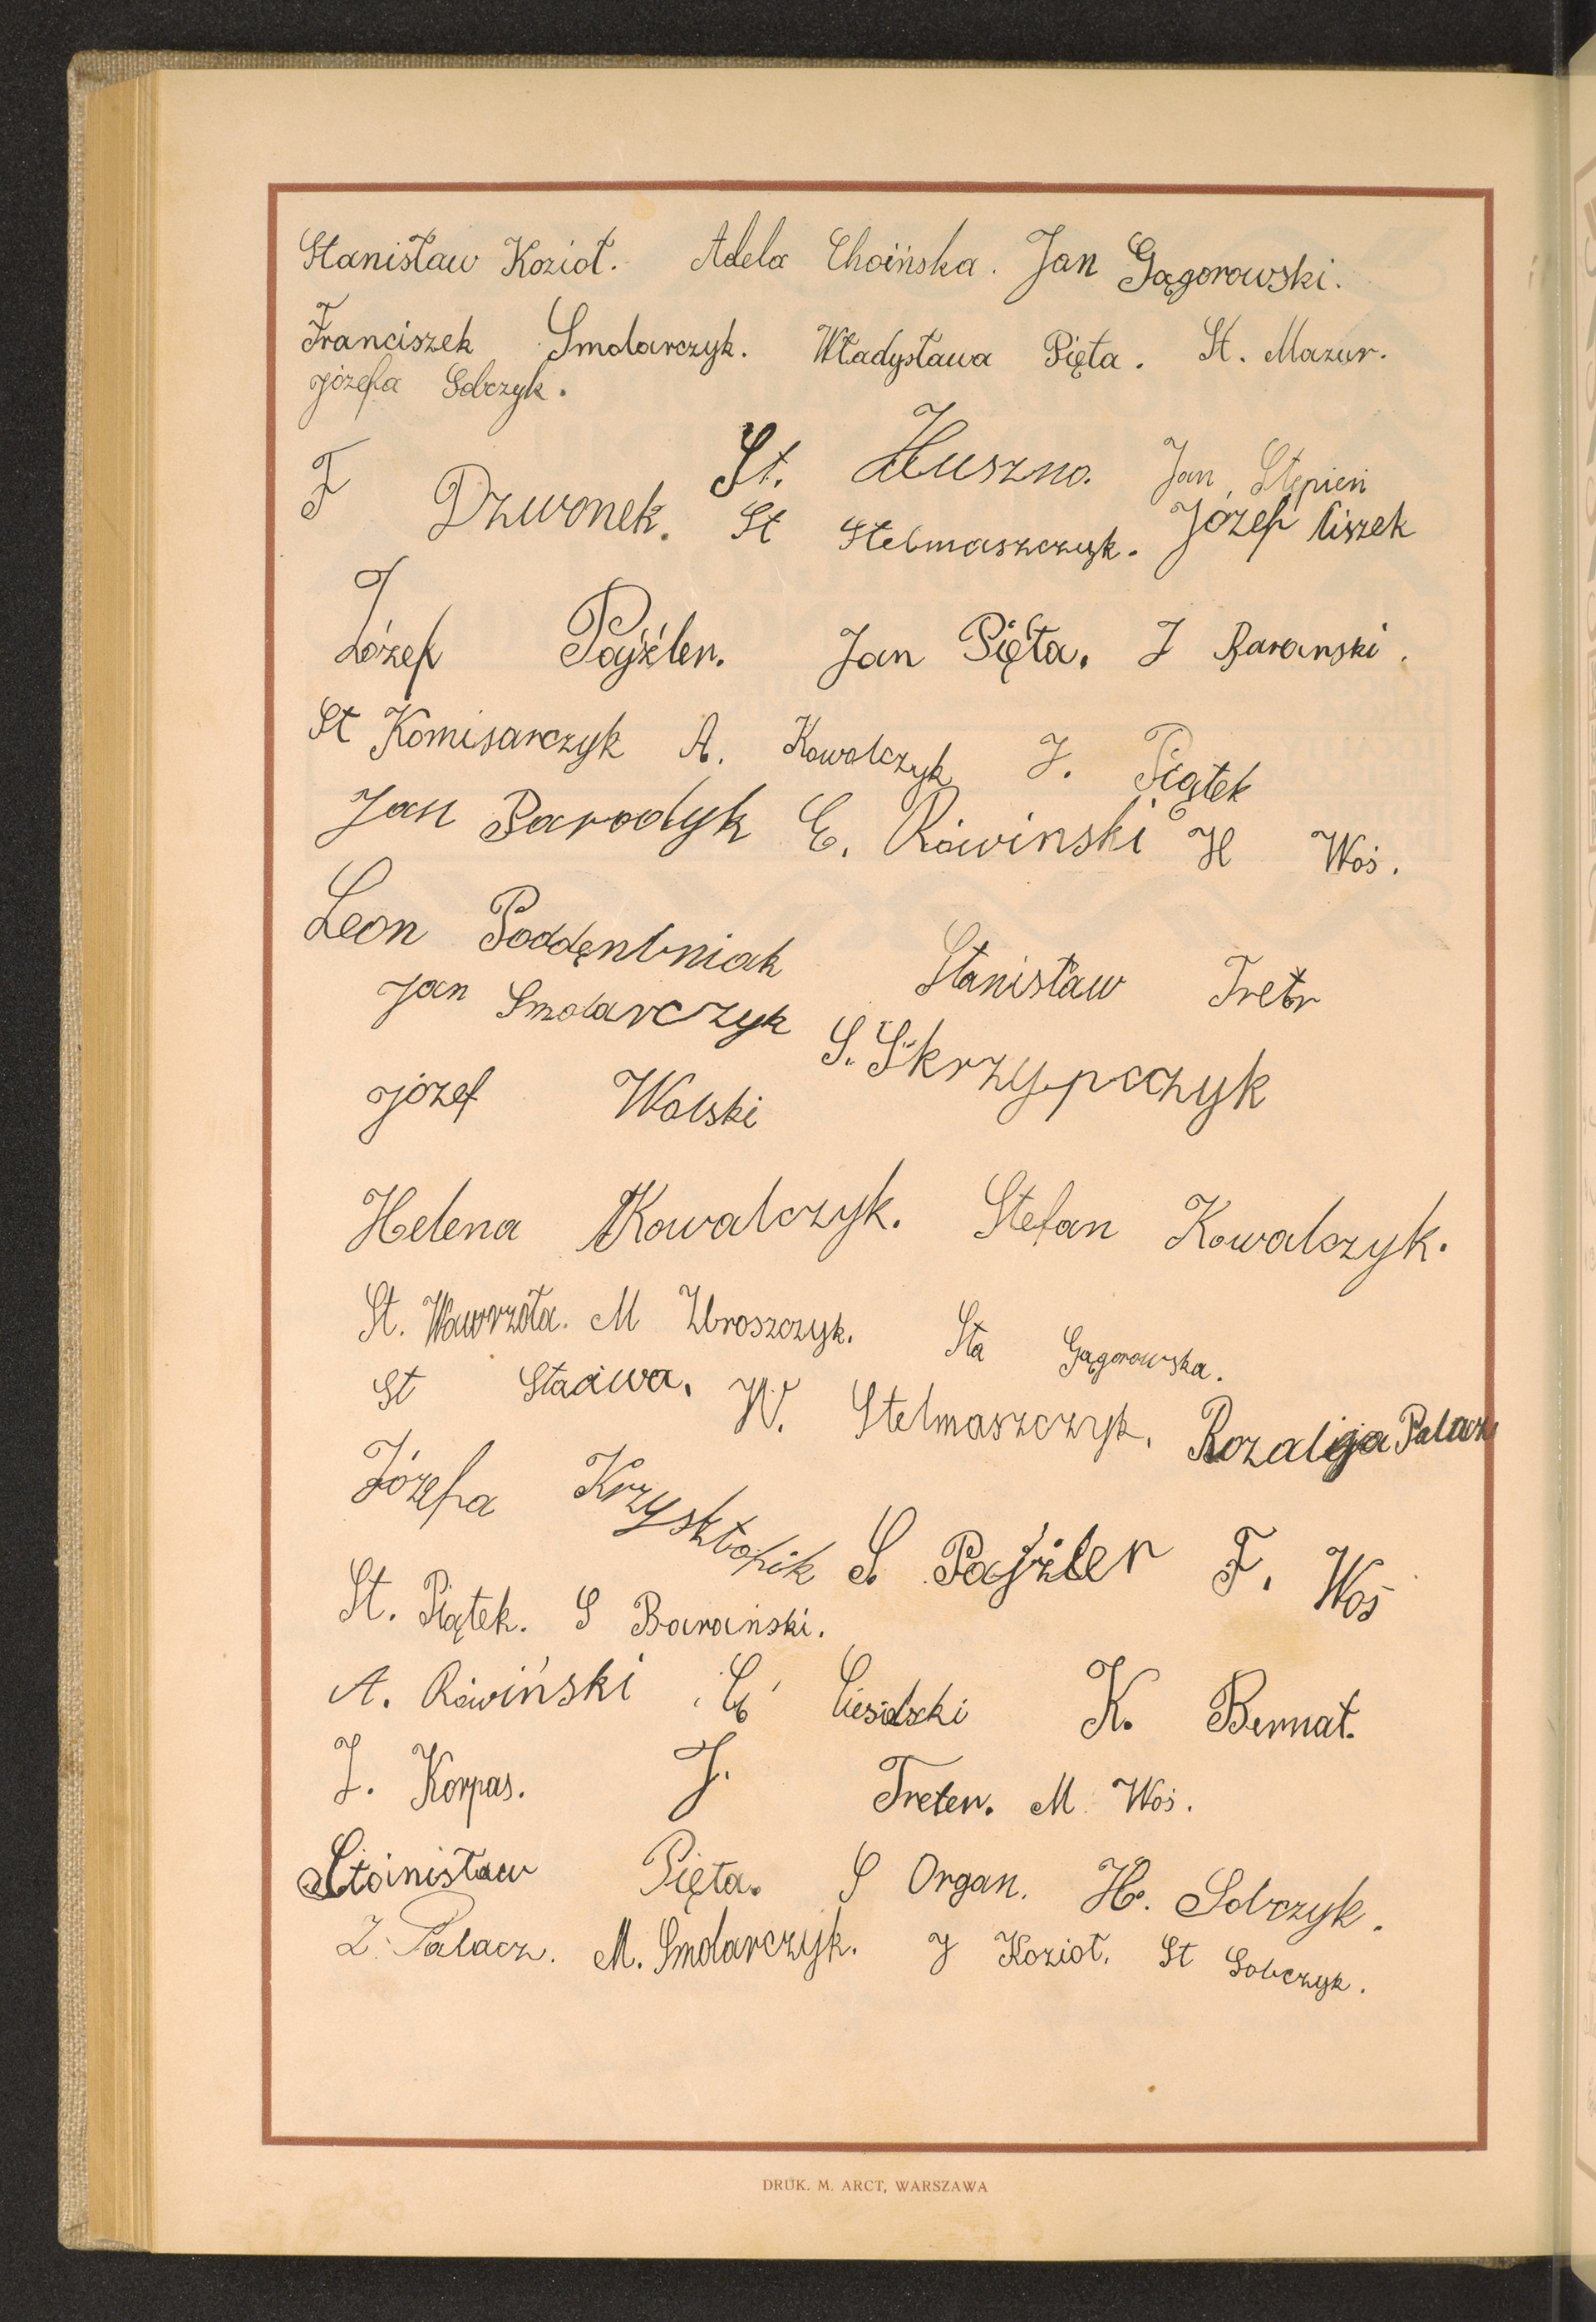 Stanisław Kozioł. Adela Choińska. Jan Gągorowski.
Franciszek Smolarczyk. Władysława Pięta. St. Mazur.
Józefa Sobczyk.
F Dzwonek. St. Huszno. Jan Stępień
St Stelmaszczyk. Józef Ciszek
Józef Pajźler. Jan Pięta. J Barański.
St Komisarczyk A. Kowalczyk J. Piątek
Jan Parodyk E. Rówinski H Woś.
Leon Poddęnbniak Stanisław Tretr
Jan Smolarczyk S. Skrzypczyk
Józef Wolski
Helena Kowalczyk. Stefan Kowalczyk.
St. Wawrzoła. M Zbroszczyk. Sta Gągorowska.
St W. Stelmaszczyk. Rozalija Palacz
Józefa Krzysztofik S. Pajźler F. Woś
St. Piątek. S Barański.
A. Rówiński K. Bernat.
J. Korpas. J. Treter. M. Woś.
Stanisław Pięta. S Organ. H. Sobczyk.
Z. Palacz. M. Smolarczyk. J Kozioł. St Sobczyk.
DRUK. M. ARCT, WARSZAWA